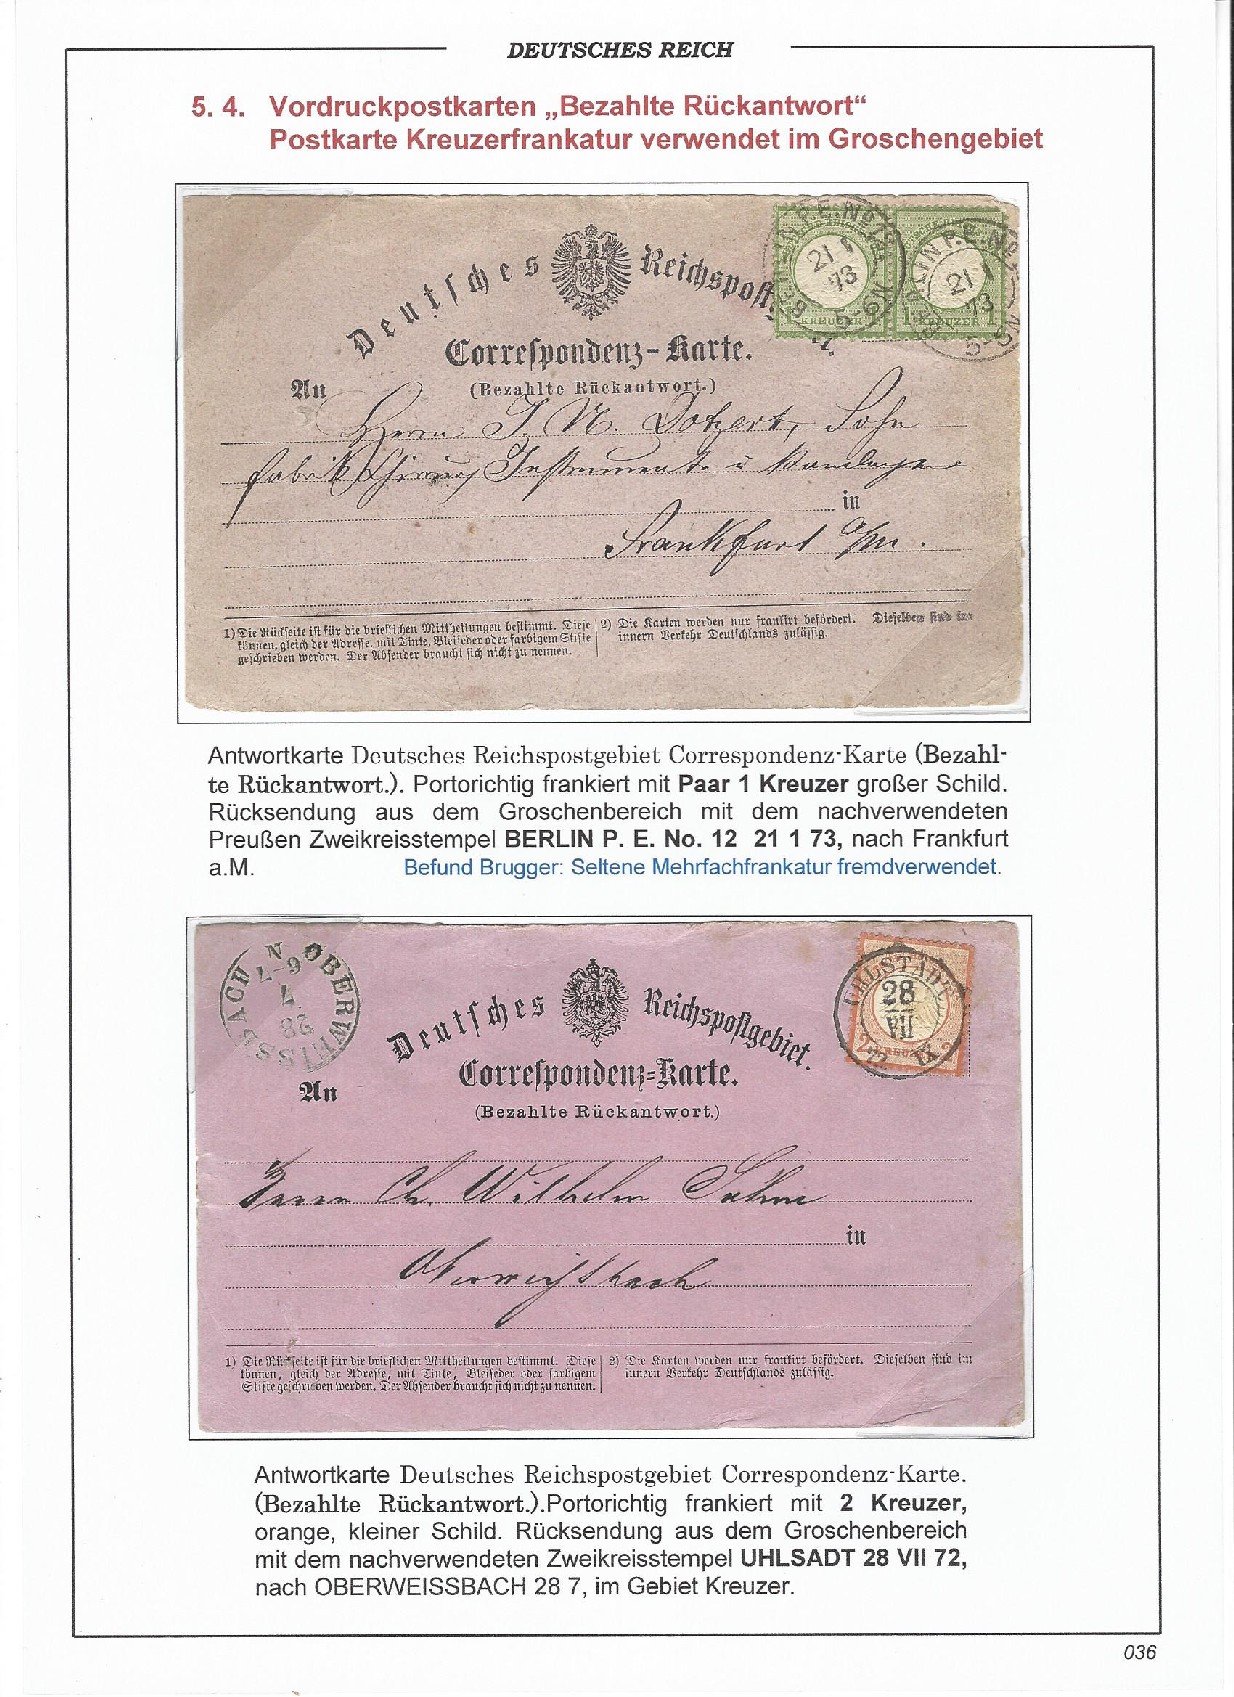 DEUTSCHES REICH
5. 4. Vordruckpostkarten „Bezahlte Rückantwort“
Postkarte Kreuzerfrankatur verwendet im Groschengebiet
Deutsches Reichspostgebiet.
Correspondenz-Karte.
(Bezahlte Rückantwort.)
An
Herrn J. N. Sohn
Fabrik Chirurg Instrumente u Bandagen
in
Frankfurt a/m.
1) Die Rückseite ist für die brieflichen Mittheilungen bestimmt. Diese
können, gleich der Adresse, mit Tinte, Bleifeder oder farbigem Stifte
geschrieben werden. Der Absender braucht sich nicht zu nennen.
2) Die Karten werden nur frankirt befördert. Dieselben sind im
innern Verkehr Deutschlands zulässig.
BERLIN P.E. No. 12
21 1
73
5-6N
1 KREUZER 1
BERLIN P.E. No.
21 1
73
5-6N
Antwortkarte Deutsches Reichspostgebiet Correspondenz-Karte (Bezahl-
te Rückantwort.). Portorichtig frankiert mit Paar 1 Kreuzer großer Schild.
Rücksendung aus dem Groschenbereich mit dem nachverwendeten
Preußen Zweikreisstempel BERLIN P. E. No. 12 21 1 73, nach Frankfurt
a.M. Befund Brugger: Seltene Mehrfachfrankatur fremdverwendet.
OBERWEISSBACH
28
7
6-7 N
UHLSTÄDT
28
VII
72
Deutsches Reichspostgebiet.
Correspondenz-Karte.
(Bezahlte Rückantwort.)
An
Herrn Ch. Wilhelm
in
Oberweißbach
1) Die Rückseite ist für die brieflichen Mittheilungen bestimmt. Diese
können, gleich der Adresse, mit Tinte, Bleifeder oder farbigem
Stifte geschrieben werden. Der Absender braucht sich nicht zu nennen.
2) Die Karten werden nur frankirt befördert. Dieselben sind im
innern Verkehr Deutschlands zulässig.
Antwortkarte Deutsches Reichspostgebiet Correspondenz-Karte.
(Bezahlte Rückantwort.).Portorichtig frankiert mit 2 Kreuzer,
orange, kleiner Schild. Rücksendung aus dem Groschenbereich
mit dem nachverwendeten Zweikreisstempel UHLSADT 28 VII 72,
nach OBERWEISSBACH 28 7, im Gebiet Kreuzer.
036